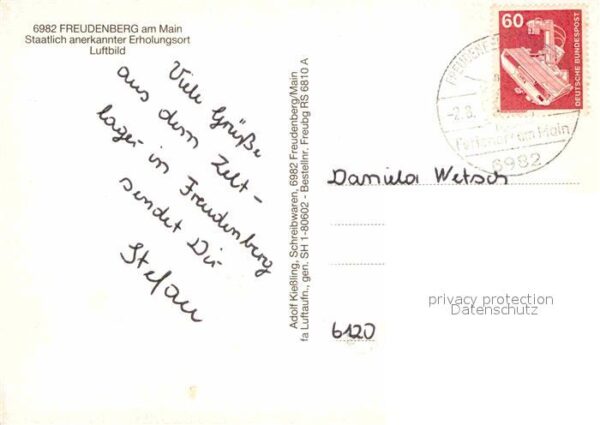 6982 FREUDENBERG am Main
Staatlich anerkannter Erholungsort
Luftbild
Viele Grüße
aus dem Zelt-
lager in Freudenberg
sendet Dir
Stefan
Adolf Kießling, Schreibwaren, 6982 Freudenberg/Main
fa Luftaufn., gen. SH 1-80602 - Bestellnr. Freubg RS 6810 A
60
DEUTSCHE BUNDESPOST
-2.8.
Ferienort am Main
6982
Daniela Wetsch
6120
privacy protection
Datenschutz